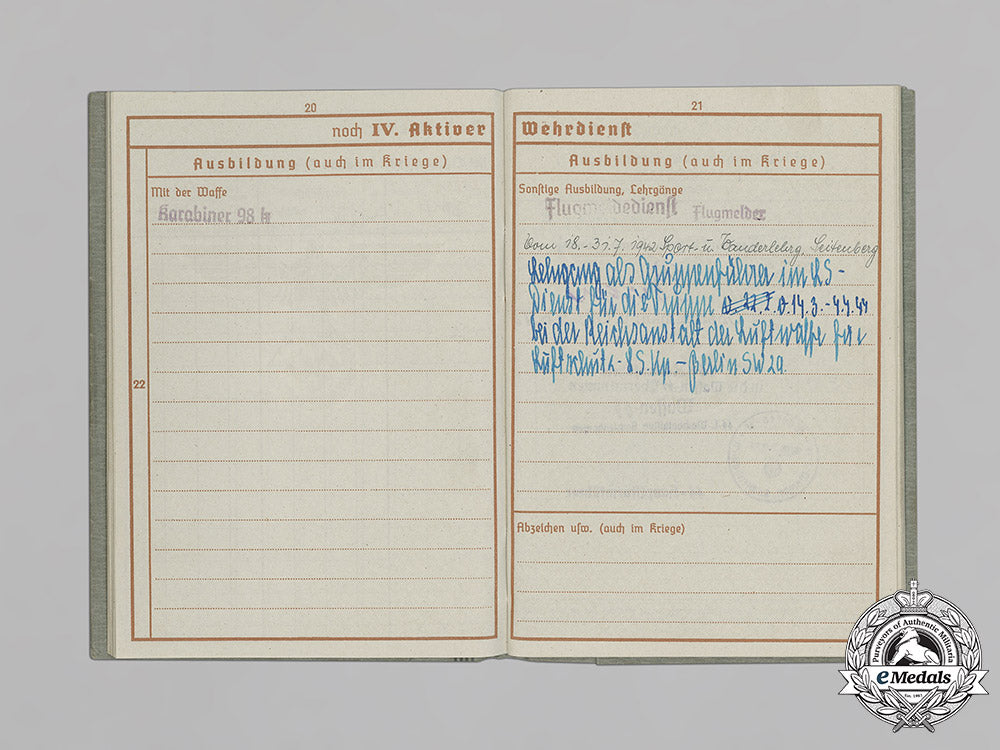 20
noch IV. Aktiver
Ausbildung (auch im Kriege)
Mit der Waffe
Karabiner 98 k
22
21
Wehrdienst
Ausbildung (auch im Kriege)
Sonstige Ausbildung, Lehrgänge
Flugmeldedienst Flugmelder
Vom 18.-31.7.1942 Sport- u.
Lehrgang als Gruppenführer im LS-
Dienst für die Truppe 14.3.-4.4.44
bei der Reichsanstalt der Luftwaffe für
Luftschutz - Berlin SW 29.
Abzeichen usw. (auch im Kriege)
Purveyors of Authentic Militaria
eMedals